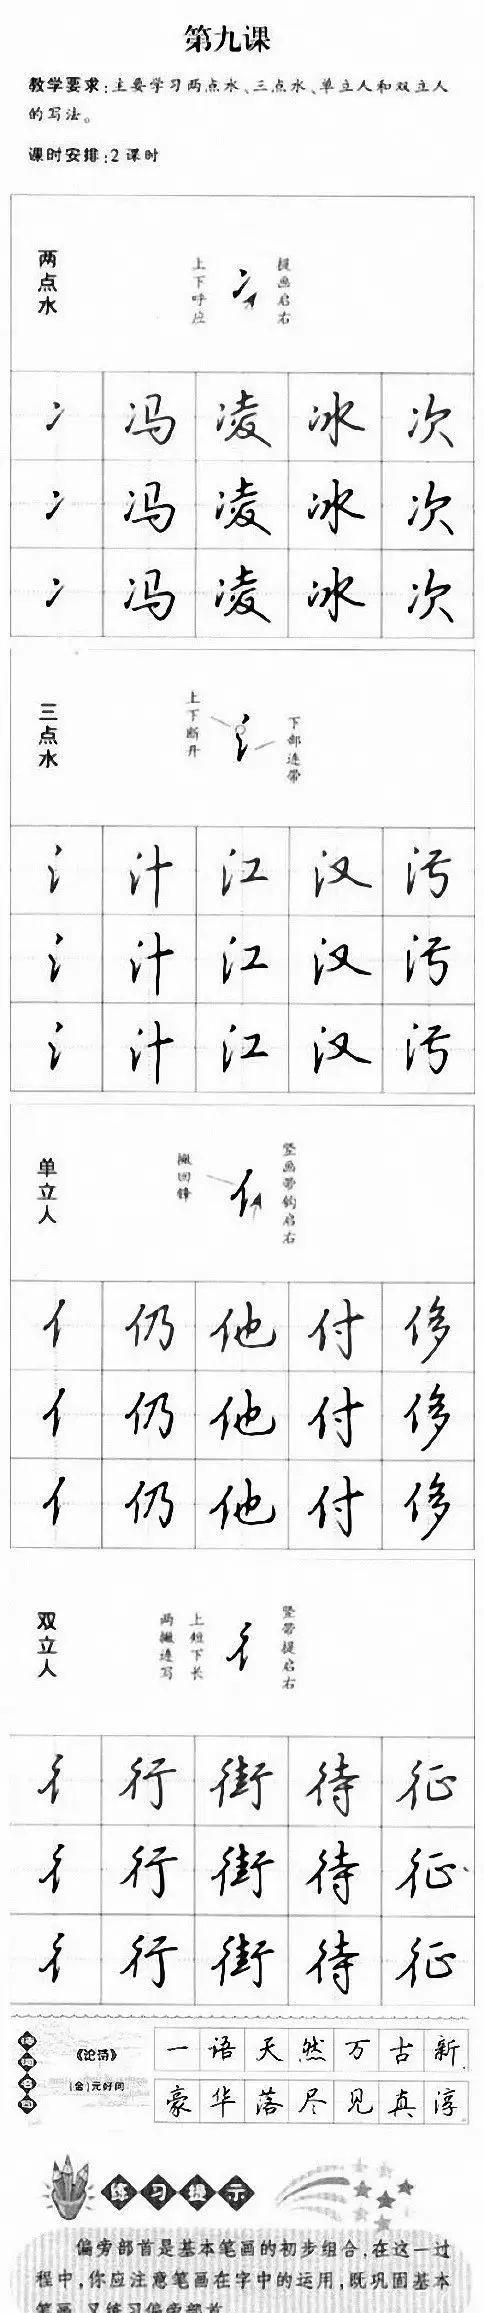 第九课
教学要求:主要学习两点水、三点水、单立人和双立人
的写法。
课时安排:2课时
两点水
上下呼应
提画启右
冫 冯 凌 冰 次
冫 冯 凌 冰 次
冫 冯 凌 冰 次
三点水
上下断开
下部连带
氵 汁 江 汉 污
氵 汁 江 汉 污
氵 汁 江 汉 污
单立人
撇回锋
竖画带钩启右
亻 仍 他 付 侈
亻 仍 他 付 侈
亻 仍 他 付 侈
双立人
上短下长
两撇连写
竖带提启右
彳 行 街 待 征
彳 行 街 待 征
彳 行 街 待 征
诗词名句
《论诗》
(金)元好问
一语天然万古新.
豪华落尽见真淳
练习提示
偏旁部首是基本笔画的初步组合,在这一过
程中,你应注意笔画在字中的运用,既巩固基本
笔画,又练习偏旁部首